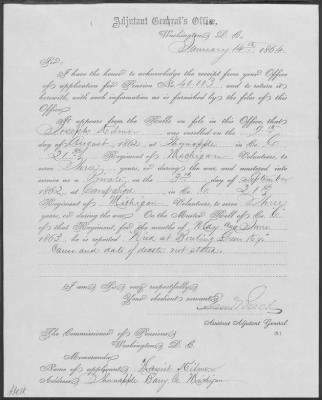 Adjutant General's Office,
Washington, D. C.
January 14th, 1864.
Sir:
I have the honor to acknowledge the receipt from your Office
of application for Pension No. 40.113 and to return it
herewith, with such information as is furnished by the files of this
Office.
It appears from the Rolls on file in this Office, that
Joseph Kilmer was enrolled on the 9th
day of August, 1862, at Thornapple in Co. C
21st Regiment of Michigan Volunteers, to
serve Three years, or during the war, and mustered into
service as a Private on the day of September
1862, at Camp in Co. C 21st
Regiment of Michigan Volunteers, to serve Three
years, or during the war. On the Muster Roll of Co. C
of that Regiment, for the months of May and June
1863, he is reported "Died at Bowling Green Ky"
Cause and date of death not stated.
I am, Sir, very respectfully,
Your obedient servant,
Assistant Adjutant General.
The Commissioner of Pensions,
Washington, D. C.
Memoranda:
Name of applicant, Kilmer
Address, Thornapple Barry Co Michigan